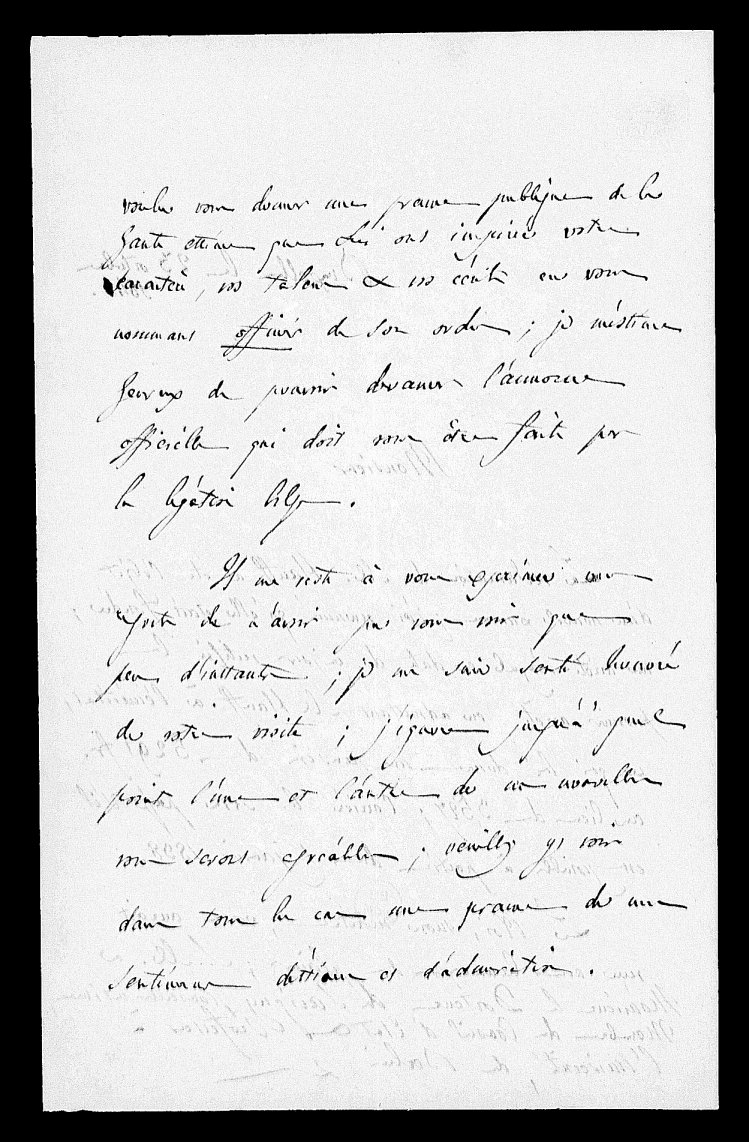 voulu vous donner une preuve publique de la
haute estime que lui ont inspirée votre
caractère, vos talens & vos écrits en vous
nommant officier de son ordre ; je m'estime
heureux de pouvoir devancer l'annonce
officielle qui doit vous être faite par
la légation belge.
Il me reste à vous exprimer mon
regret de n'avoir pas vous voir que
peu d'instants ; je me suis senti honoré
de votre visite ; j'ignore jusqu'à quel
point l'une et l'autre de ces nouvelles
vous seront agréables ; veuillez y voir
dans tous les cas une preuve de mes
sentimens d'estime et d'admiration.